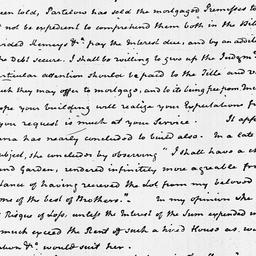 een told, Partelow has sold the mortgaged Premises to
t not be expedient to comprehend them both in the Bill
vided Remseys &c. pay the Interest due, and by an additi
the Debt secure. I shall be willing to give up the Judgm
articular attention should be paid to the Title and v
ch they may offer to mortgage, and to its being free from Inc
ope your building will realize your Expectations f
you request is much at your Service. It app
ma has nearly concluded to build also. In a late
ubject, she concludes by observing "I shall have a ch
and Garden, rendered infinitely more agreeable fro
dance of having received the Lot from my beloved
ome of the best of Brothers." In my opinion she
Risque of Loss, unless the Interest of the Sum expended w
much exceed the Rent of such a hired House as w
would suit her.